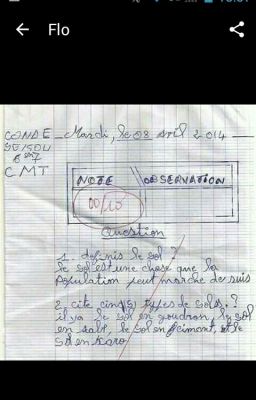 Flo
CONDE Mardi, le 08 avril 2014
SEKOU
6em7
CMT
NOTE OBSERVATION
00/10
Question
1. definis le sol ?
le sol est une chose que la
Population peut marche de suis
2 cite cinq(5) types de sols. ?
il ya le sol en goudron, le sol
en sable, le sol en ciment, et le
Sol en karo